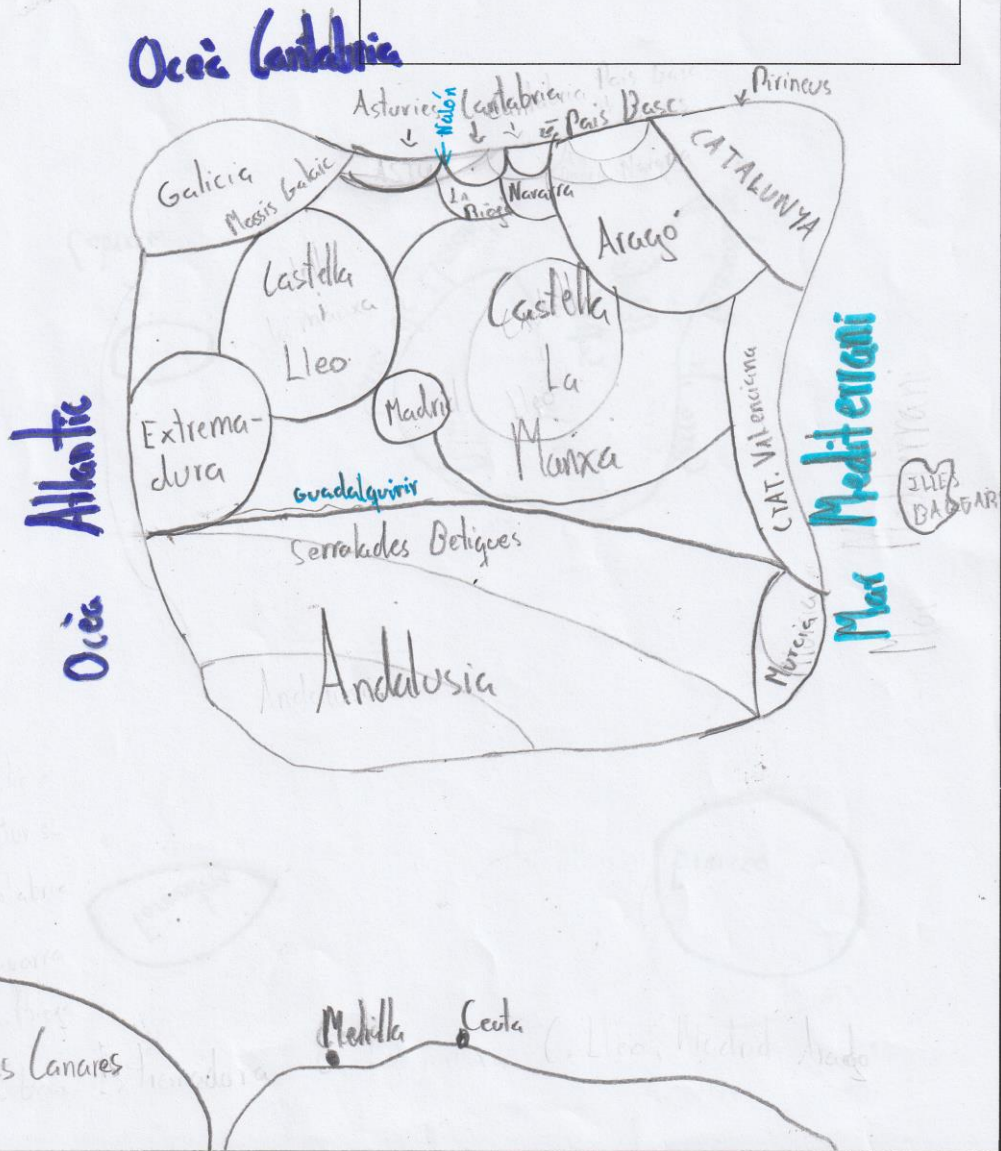 Oceà Cantabria
Pirineus
Asturies
Cantabria
Nalón
País Basc
CATALUNYA
Galicia
Massis Galaic
La
Rioja
Navarra
Aragó
Castella
Lleo
Castella
La
Manxa
Madrid
Extrema-
dura
CTAT. Valenciana
Mar Mediterrani
ILLES
BALEARS
Oceà Atlantic
Guadalquivir
Serralades Betiques
Andalusia
Murcia
Melilla
Ceuta
s Canares